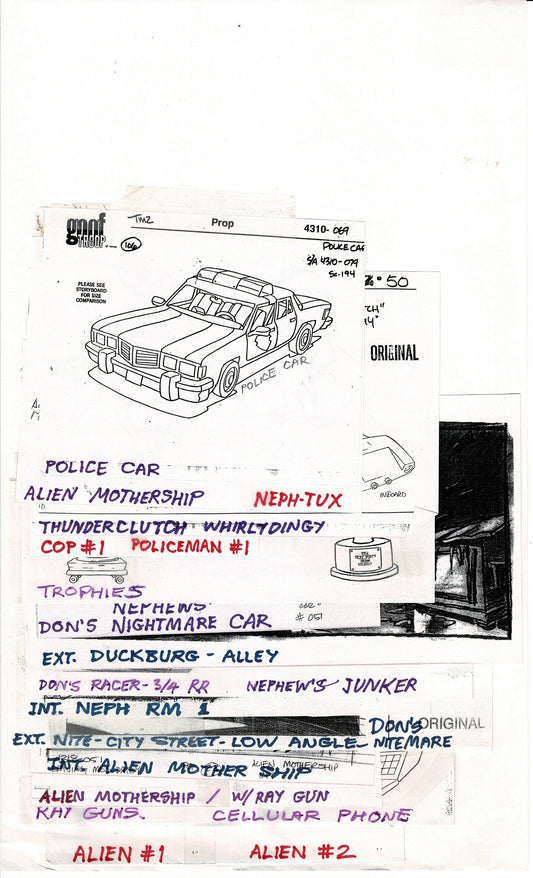 goof TROOP
TMZ
Prop
4310-069
106
POLICE CAR
S/A 4310-079
Sc. 194
PLEASE SEE
STORYBOARD
FOR SIZE
COMPARISON
50
ORIGINAL
POLICE CAR
INBOARD
POLICE CAR
ALIEN MOTHERSHIP
NEPH-TUX
THUNDERCLUTCH WHIRLYDINGY
COP #1 POLICEMAN #1
TROPHIES
NEPHEWS'
DON'S NIGHTMARE CAR
# 051
EXT. DUCKBURG - ALLEY
DON'S RACER - 3/4 RR NEPHEW'S JUNKER
INT. NEPH RM 1
DON'S
ORIGINAL
EXT. NITE-CITY STREET-LOW ANGLE- NITEMARE
INT. ALIEN MOTHER SHIP
ALIEN MOTHERSHIP
ALIEN MOTHERSHIP / W/RAY GUN
RAY GUNS. CELLULAR PHONE
ALIEN #1 ALIEN #2